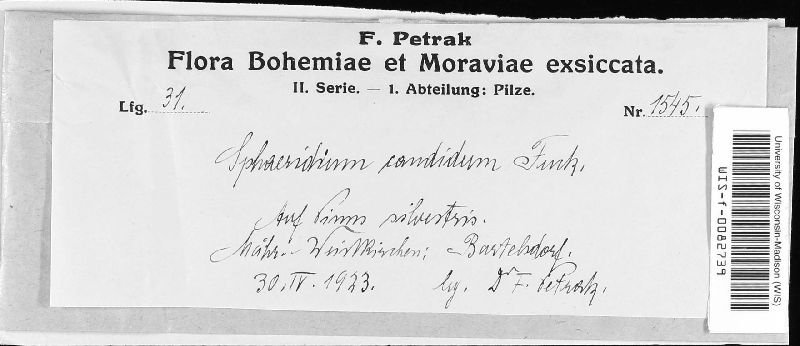 F. Petrak
Flora Bohemiae et Moraviae exsiccata.
II. Serie. — 1. Abteilung: Pilze.
Lfg. 31.
Nr. 1545.
Sphaeridium candidum Fuck.
Auf Pinus silvestris.
Mähr.-Weisskirchen: Bartelsdorf.
30. IV. 1923. lg. Dr F. Petrak.
University of Wisconsin-Madison (WIS)
WIS-f-0082739